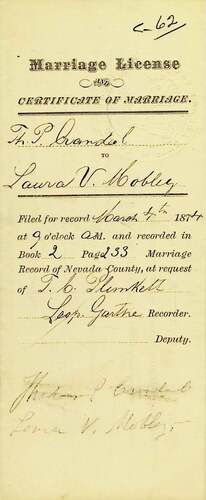 C-62
Marriage License
AND
CERTIFICATE OF MARRIAGE.
Th. P. Crandal
TO
Laura V. Mobley
Filed for record March 7th 1874
at 9 o'clock A.M. and recorded in
Book 2 Page 233 Marriage
Record of Nevada County, at request
of T. C. Plunkett
Leop. Garthe Recorder.
Deputy.
P Crandal
Laura V. Mobley